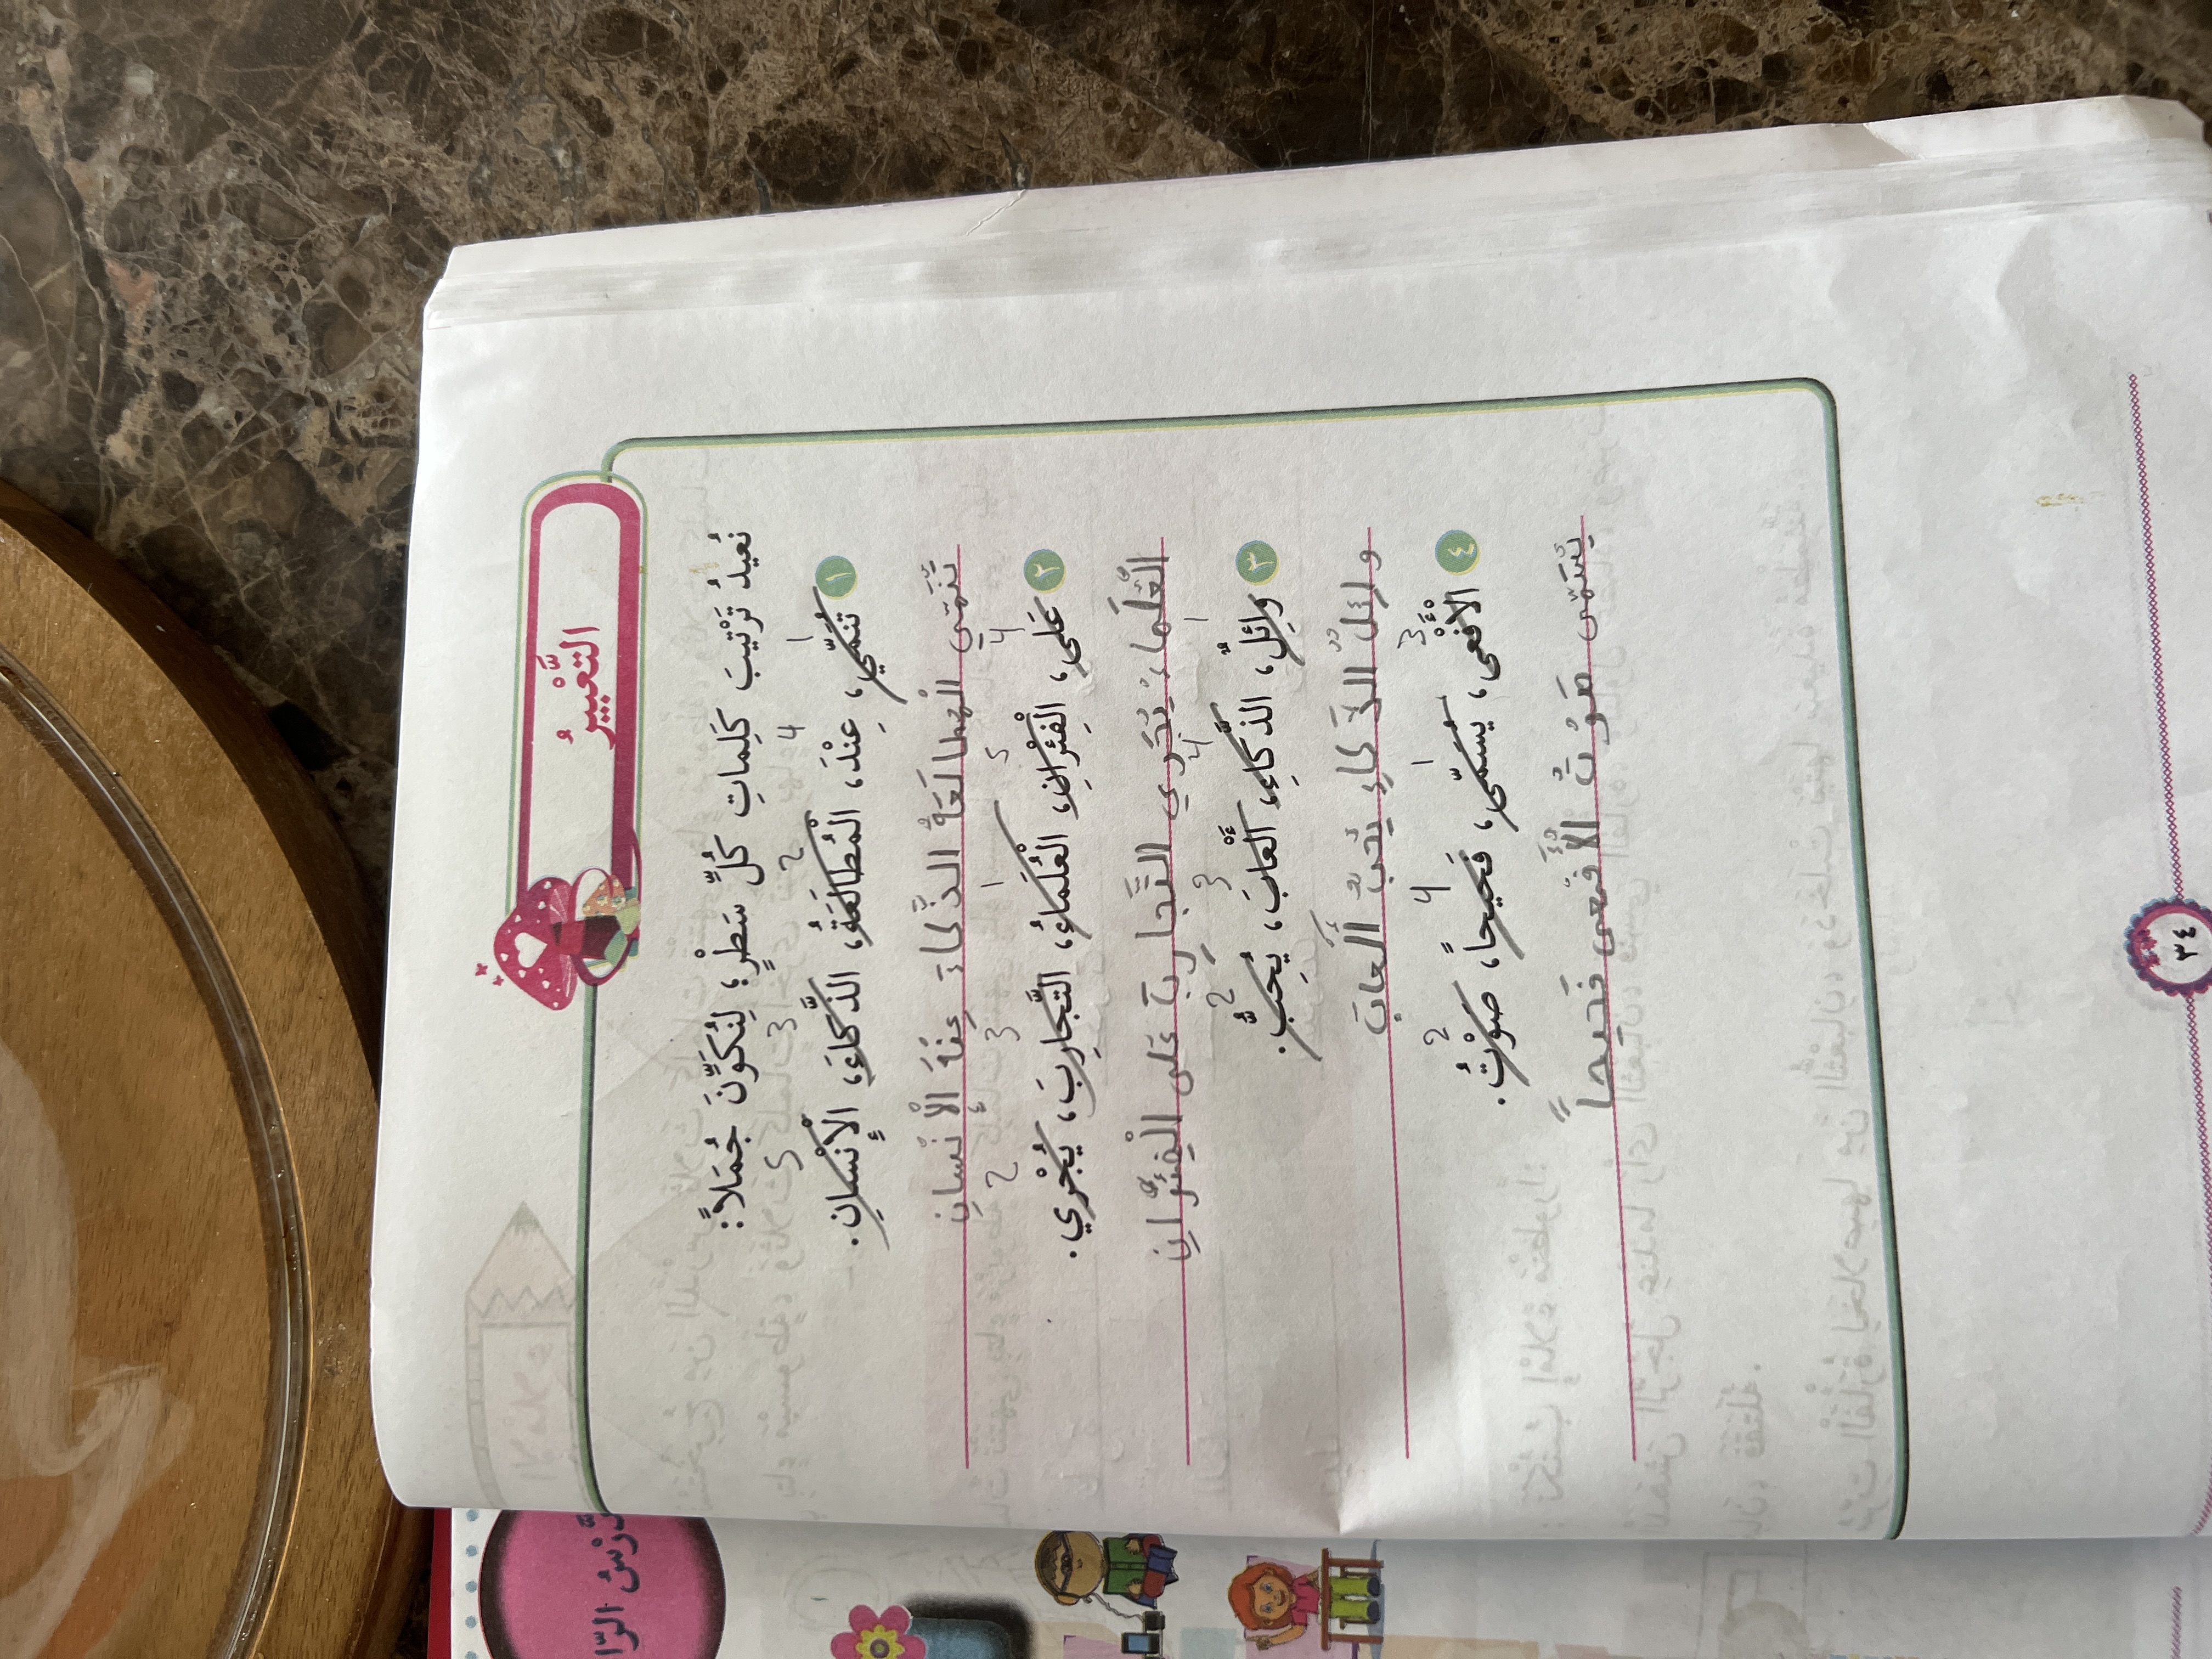 التَّعْبيرُ
نُعيدُ تَرْتيبَ كَلِماتِ كُلِّ سَطْرٍ؛ لِنُكَوِّنَ جُمَلاً:
1 4 2 3 5
١ تُنَمِّي، عِنْدَ، الْمُطالَعَةُ، الذَّكاءَ، الْإِنْسانِ.
تُنَمّي الْمطالَعَةُ الذَّكاءَ عِنْدَ الْإنْسانِ
4 5 1 3 2
٢ عَلى، الْفِئْرانِ، الْعُلَماءُ، التَّجارِبَ، يُجْري.
الْعُلَماءُ يُجْري التَّجارِبَ عَلى الْفِئْرانِ
1 4 3 2
٣ وائِلٌ، الذَّكاءِ، أَلْعابَ، يُحِبُّ.
وائلٌ الذَكاءِ يُحبُّ أَلْعابَ
3 1 4 2
٤ الْأَفْعى، يُسَمّى، فَحيحاً، صَوْتُ.
يُسَمّى صَوْتُ الْأَفْعى فَحيحاً
٣٤